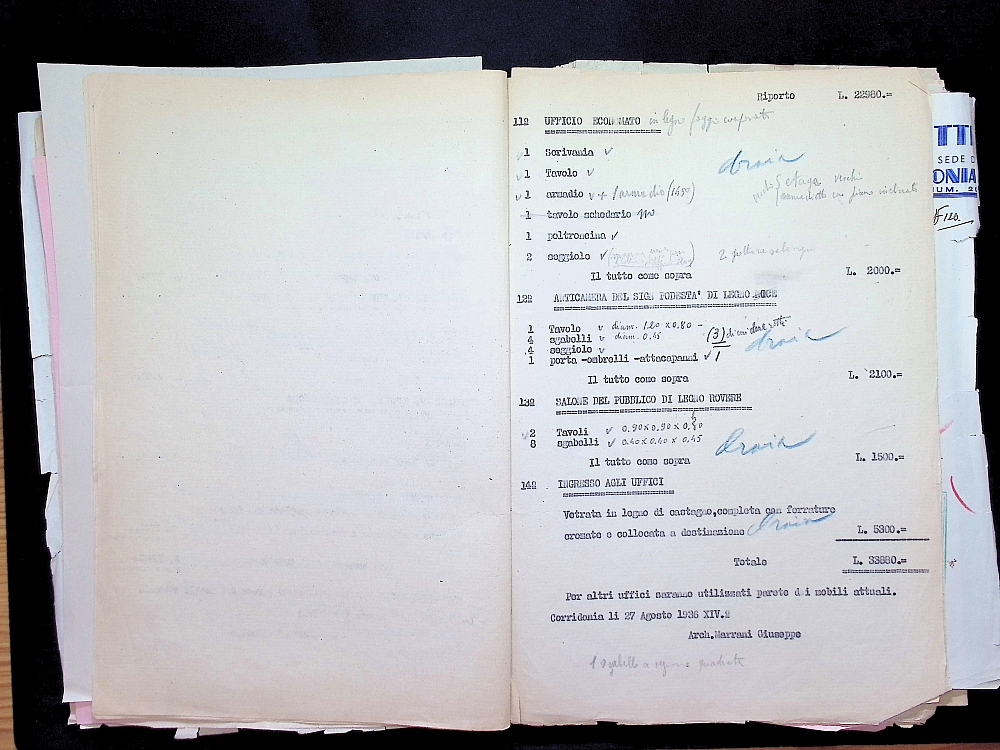 Riporto L. 22980.=
11º UFFICIO ECONOMATO in legno faggio
1 Scrivania
1 Tavolo
1 armadio + 1 armadio (1450)
1 tavolo schedario no
1 poltroncina
2 seggiole
Il tutto come sopra L. 2000.=
12º ANTICAMERA DEL SIGN PODESTA' DI LEGNO NOCE
1 Tavolo diam. 1.20 x 0.80
4 sgabelli diam. 0.45 (3)
4 seggiole
1 porta -ombrelli -attacapanni 1
Il tutto come sopra L. 2100.=
13º SALONE DEL PUBBLICO DI LEGNO ROVERE
2 Tavoli 0.90 x 0.90 x 0.80
8 sgabelli 0.40 x 0.40 x 0.45
Il tutto come sopra L. 1500.=
14º INGRESSO AGLI UFFICI
Vetrata in legno di castagno,completa con ferrature
cromate e collocata a destinazione L. 5300.=
Totale L. 33880.=
Per altri uffici saranno utilizzati parete dei mobili attuali.
Corridonia li 27 Agosto 1936 XIV.º
Arch.Marrani Giuseppe
TTI
SEDE D
ONIA
NUM. 2